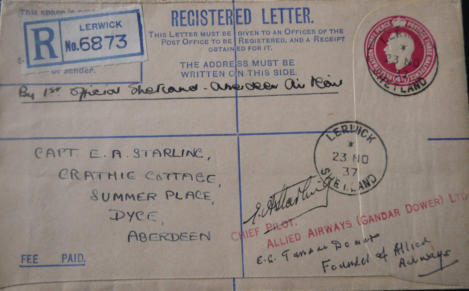 LERWICK
R No. 6873
REGISTERED LETTER.
THIS LETTER MUST BE GIVEN TO AN OFFICER OF THE
POST OFFICE TO BE REGISTERED, AND A RECEIPT
OBTAINED FOR IT.
THE ADDRESS MUST BE
WRITTEN ON THIS SIDE.
of sender.
SHETLAND
By 1st Official Shetland - Aberdeen Air Mail
LERWICK
23 NO
37
SHETLAND
CAPT. E. A. STARLING,
CRATHIE COTTAGE,
SUMMER PLACE,
DYCE,
ABERDEEN
E A Starling
CHIEF PILOT,
ALLIED AIRWAYS (GANDAR DOWER) LTD
E.G. Gandar Dower
Founder of Allied
Airways
FEE PAID.